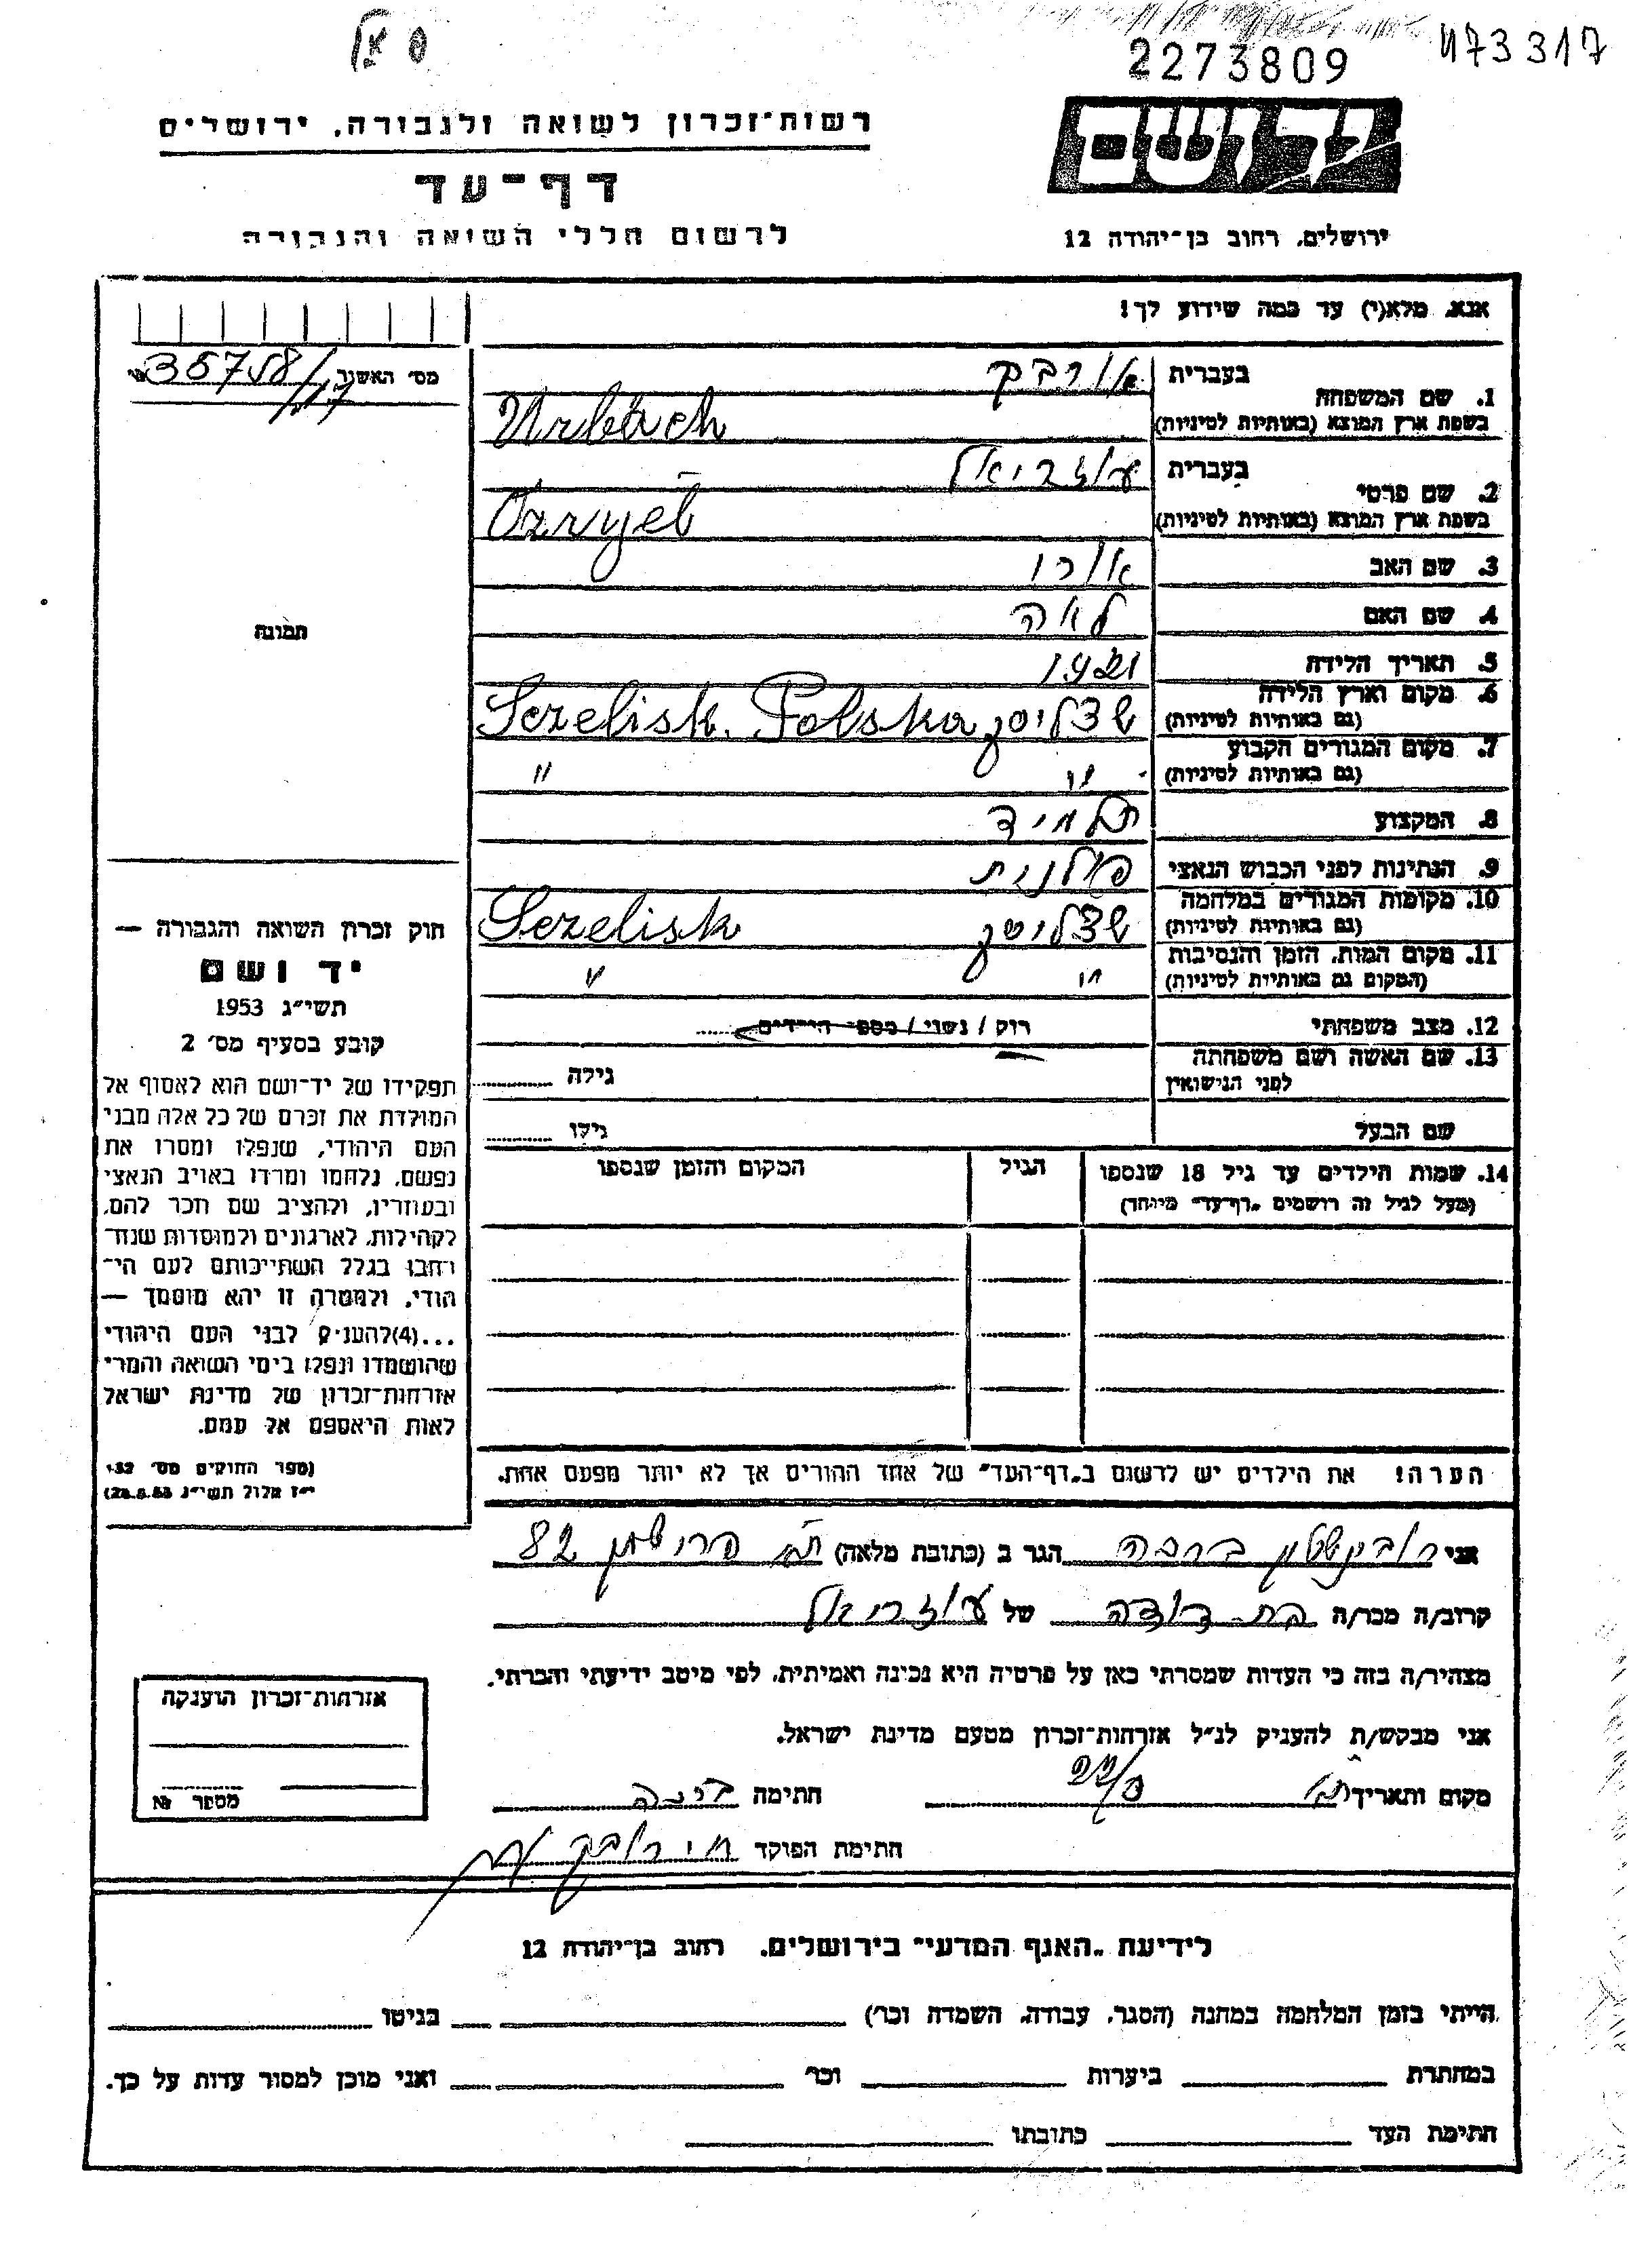 2273809
473317
רשות־זכרון לשואה ולגבורה, ירושלים
דף־עד
לרשום חללי השואה והגבורה
יד ושם
ירושלים, רחוב בן־יהודה 12
אנא, מלא(י) עד כמה שידוע לך!
מס׳ האשור
1. שם המשפחה
בעברית אורבך
בשפת ארץ המוצא (באותיות לטיניות) Urbach
2. שם פרטי
בעברית עוזריאל
בשפת ארץ המוצא (באותיות לטיניות) Ozryel
3. שם האב אורי
4. שם האם לאה
5. תאריך הלידה 1921
6. מקום וארץ הלידה
(גם באותיות לטיניות) שצליסק Sczelisk. Polska
7. מקום המגורים הקבוע
(גם באותיות לטיניות) " "
8. המקצוע תלמיד
9. הנתינות לפני הכבוש הנאצי פולנית
10. מקומות המגורים במלחמה
(גם באותיות לטיניות) שצליסק Sczelisk
11. מקום המות, הזמן והנסיבות
(המקום גם באותיות לטיניות) " "
12. מצב משפחתי רוק / נשוי / מספר הילדים
13. שם האשה ושם משפחתה
לפני הנישואין גילה
שם הבעל גילו
14. שמות הילדים עד גיל 18 שנספו הגיל המקום והזמן שנספו
(מעל לגיל זה רושמים „דף־עד” מיוחד)
הערה! את הילדים יש לרשום ב„דף־העד” של אחד ההורים אך לא יותר מפעם אחת.
תמונה
חוק זכרון השואה והגבורה —
יד ושם
תשי״ג 1953
קובע בסעיף מס׳ 2
תפקידו של יד־ושם הוא לאסוף אל
המולדת את זכרם של כל אלה מבני
העם היהודי, שנפלו ומסרו את
נפשם, נלחמו ומרדו באויב הנאצי
ובעוזריו, ולהציב שם וזכר להם,
לקהילות, לארגונים ולמוסדות שנח־
רבו בגלל השתייכותם לעם הי־
הודי, ולמטרה זו יהא מוסמך —
...(4)להעניק לבני העם היהודי
שהושמדו ונפלו בימי השואה והמרי
אזרחות־זכרון של מדינת ישראל
לאות היאספם אל עמם.
(ספר החוקים מס׳ 132
י״ז אלול תשי״ג 28.8.53)
אני רובינשטין ברכה הגר ב (כתובת מלאה) ת"א פרישמן 82
קרוב/ה מכר/ה בת דודה של עוזריאל
מצהיר/ה בזה כי העדות שמסרתי כאן על פרטיה היא נכונה ואמיתית, לפי מיטב ידיעתי והכרתי.
אני מבקש/ת להעניק לנ״ל אזרחות־זכרון מטעם מדינת ישראל.
מקום ותאריך ת"א חתימה
חתימת הפוקד
אזרחות־זכרון הוענקה
מספר №
לידיעת „האגף המדעי” בירושלים, רחוב בן־יהודה 12
הייתי בזמן המלחמה במחנה (הסגר, עבודה, השמדה וכו׳) בגיטו
במחתרת ביערות וכו׳ ואני מוכן למסור עדות על כך.
חתימת העד כתובתו